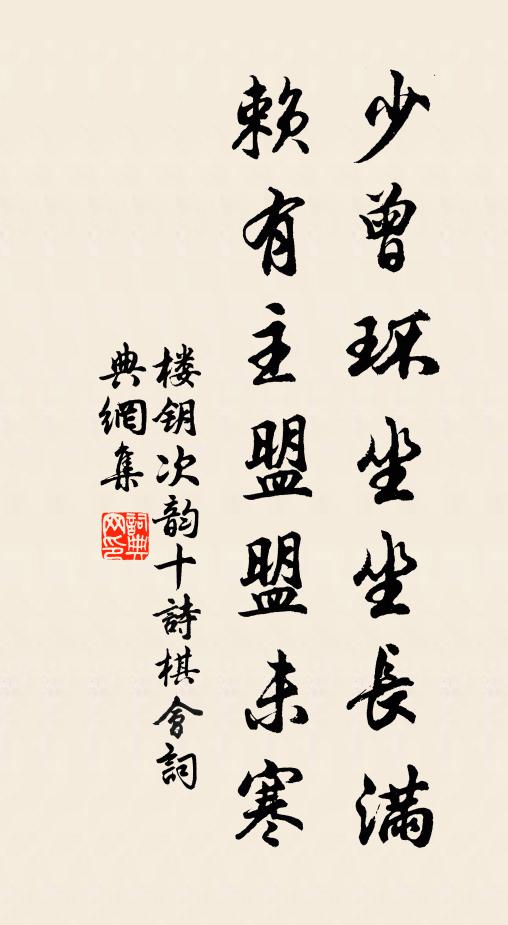 少曾环坐坐長滿
賴有主盟盟未寒
楼钥次韵十詩棋會詞
典網集
詞典網印